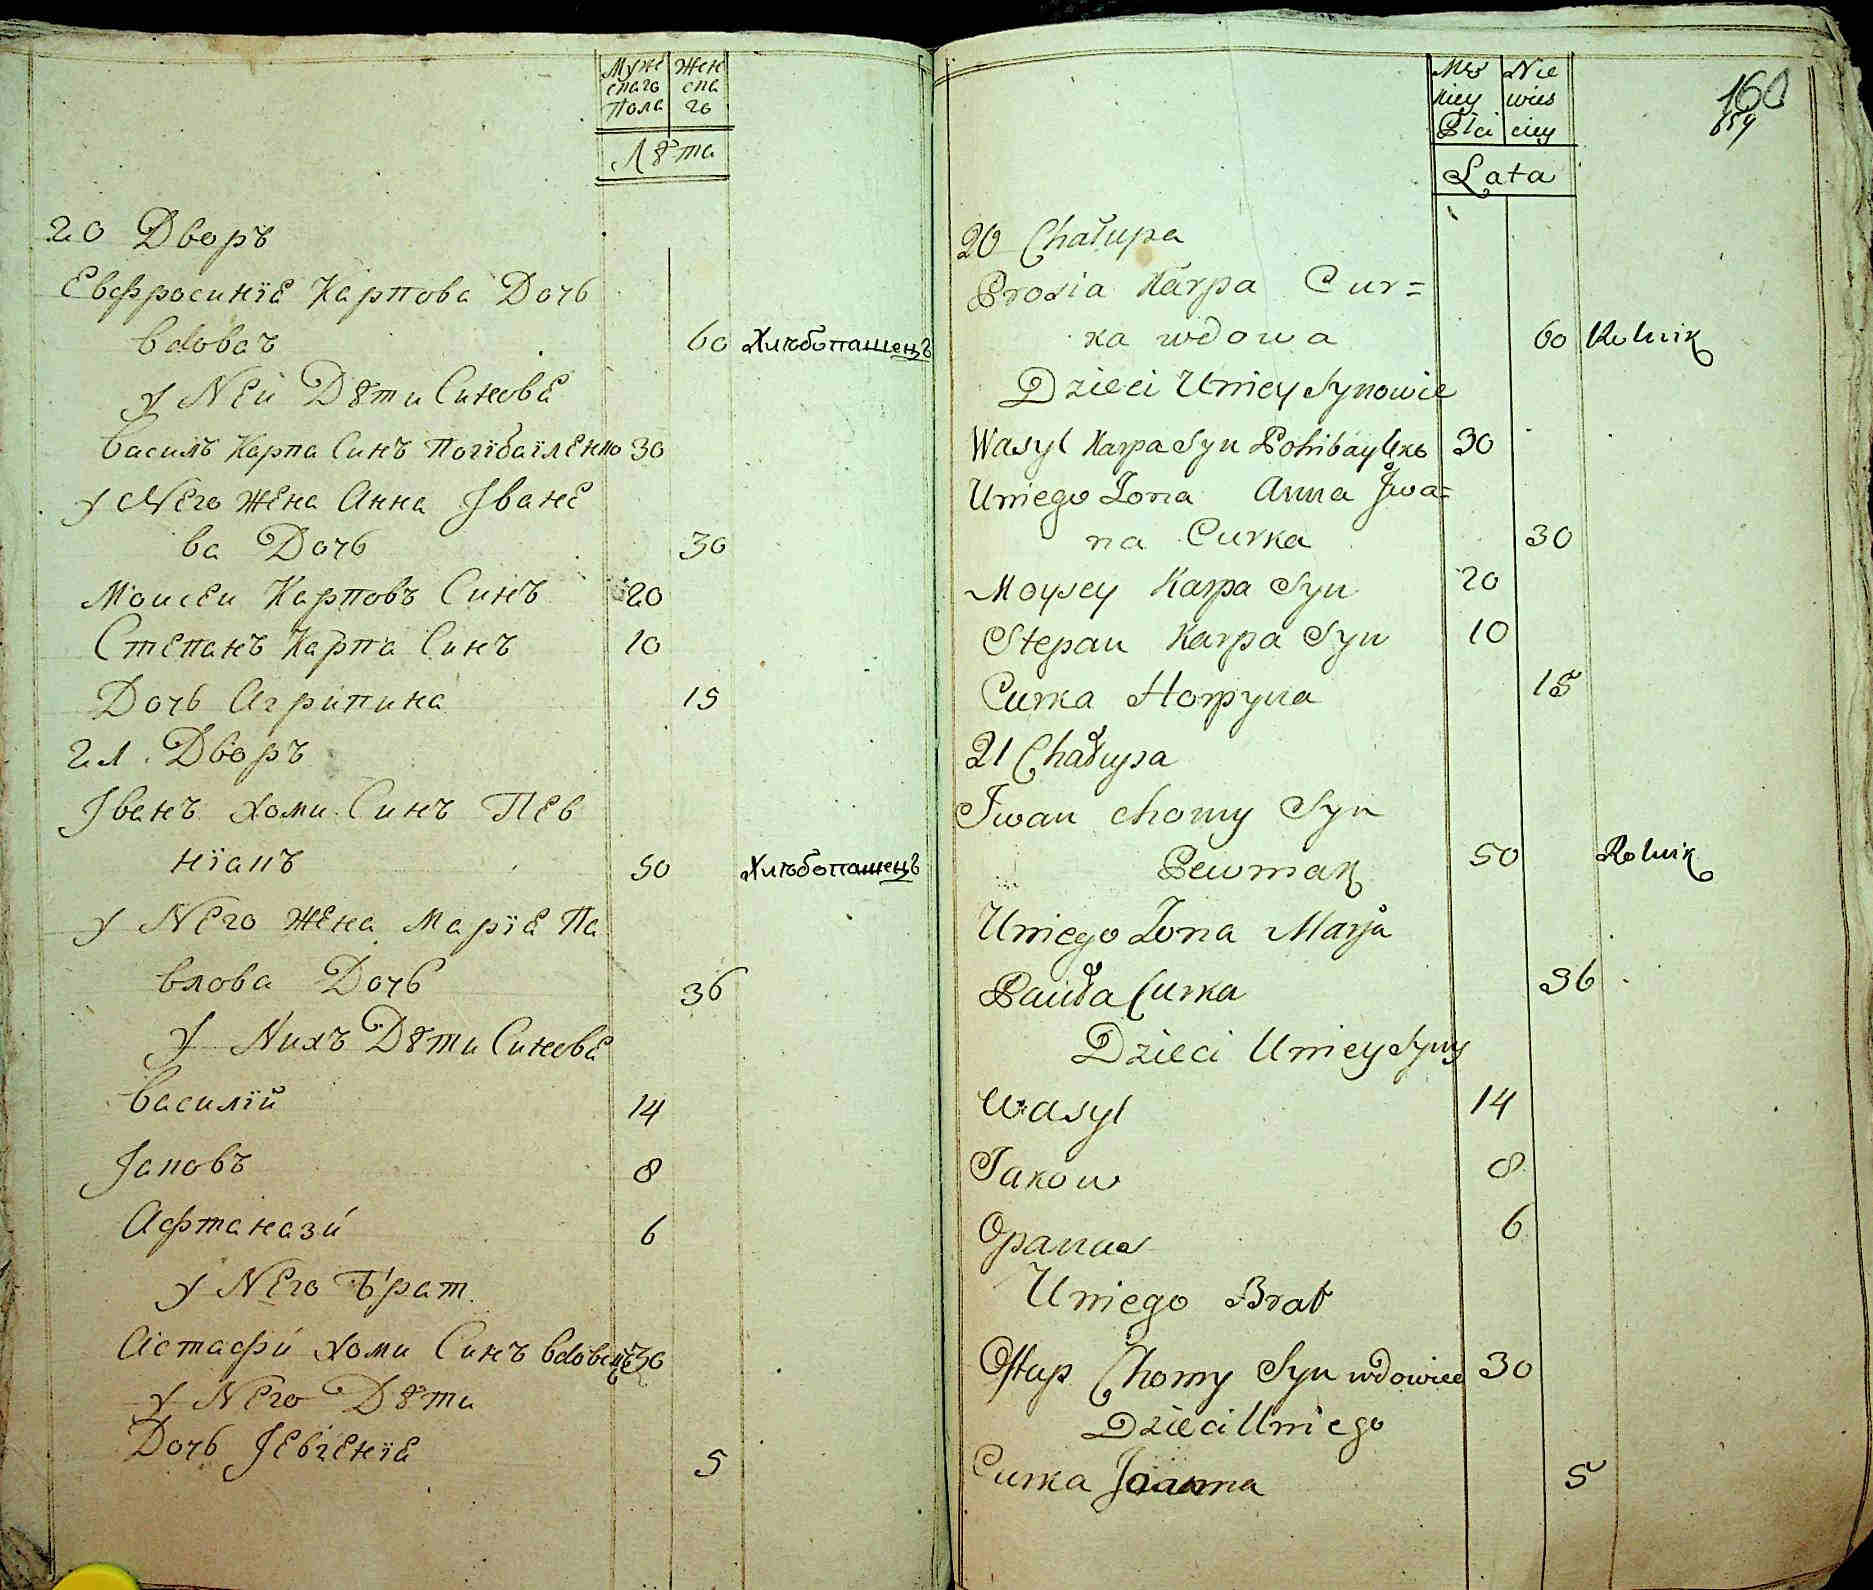 Муже Жен
скаго ска
Пола го
Лѣта
20 Дворъ
Евфросиніе Карпова Дочь
вдоваъ 60 Хлѣбопашецъ
у Ней Дѣти Синове
Василъ Карпа Синъ Погібаіленко 30
у Него Жена Анна Іване
ва Дочь 30
Моисеи Карповъ Синъ 20
Степанъ Карпа Синъ 10
Дочь Агрипина 15
21 Дворъ
Іванъ Хоми Синъ Пев
ніакъ 50 Хлѣбопашецъ
у Него Жена Маріе Па
влова Дочь 36
у Нихъ Дѣти Синове
Василій 14
Іаковъ 8
Афтанази 6
у Него Брат
Астафи Хоми Синъ вдовецъ 30
у Него Дѣти
Дочь Іевгеніе 5
Męs Nie
kiey wies
Płci ciey
Lata
160
159
20 Chałupa
Prosia Karpa Cur=
ka wdowa 60 Rolnik
Dzieci Uniey Synowie
Wasyl Karpa Syn Pohibaylko 30
Uniego Żona Anna Jwa=
na Curka 30
Moysey Karpa Syn 20
Stepan Karpa Syn 10
Curka Horpyna 15
21 Chałupa
Iwan Chomy Syn
Pewniak 50 Rolnik
Uniego Żona Marja
Pawła Curka 36
Dzieci Uniey Syny
Wasyl 14
Jakow 8
Opanas 6
Uniego Brat
Ostap Chomy Syn wdowiec 30
Dzieci Uniego
Curka Joanna 5